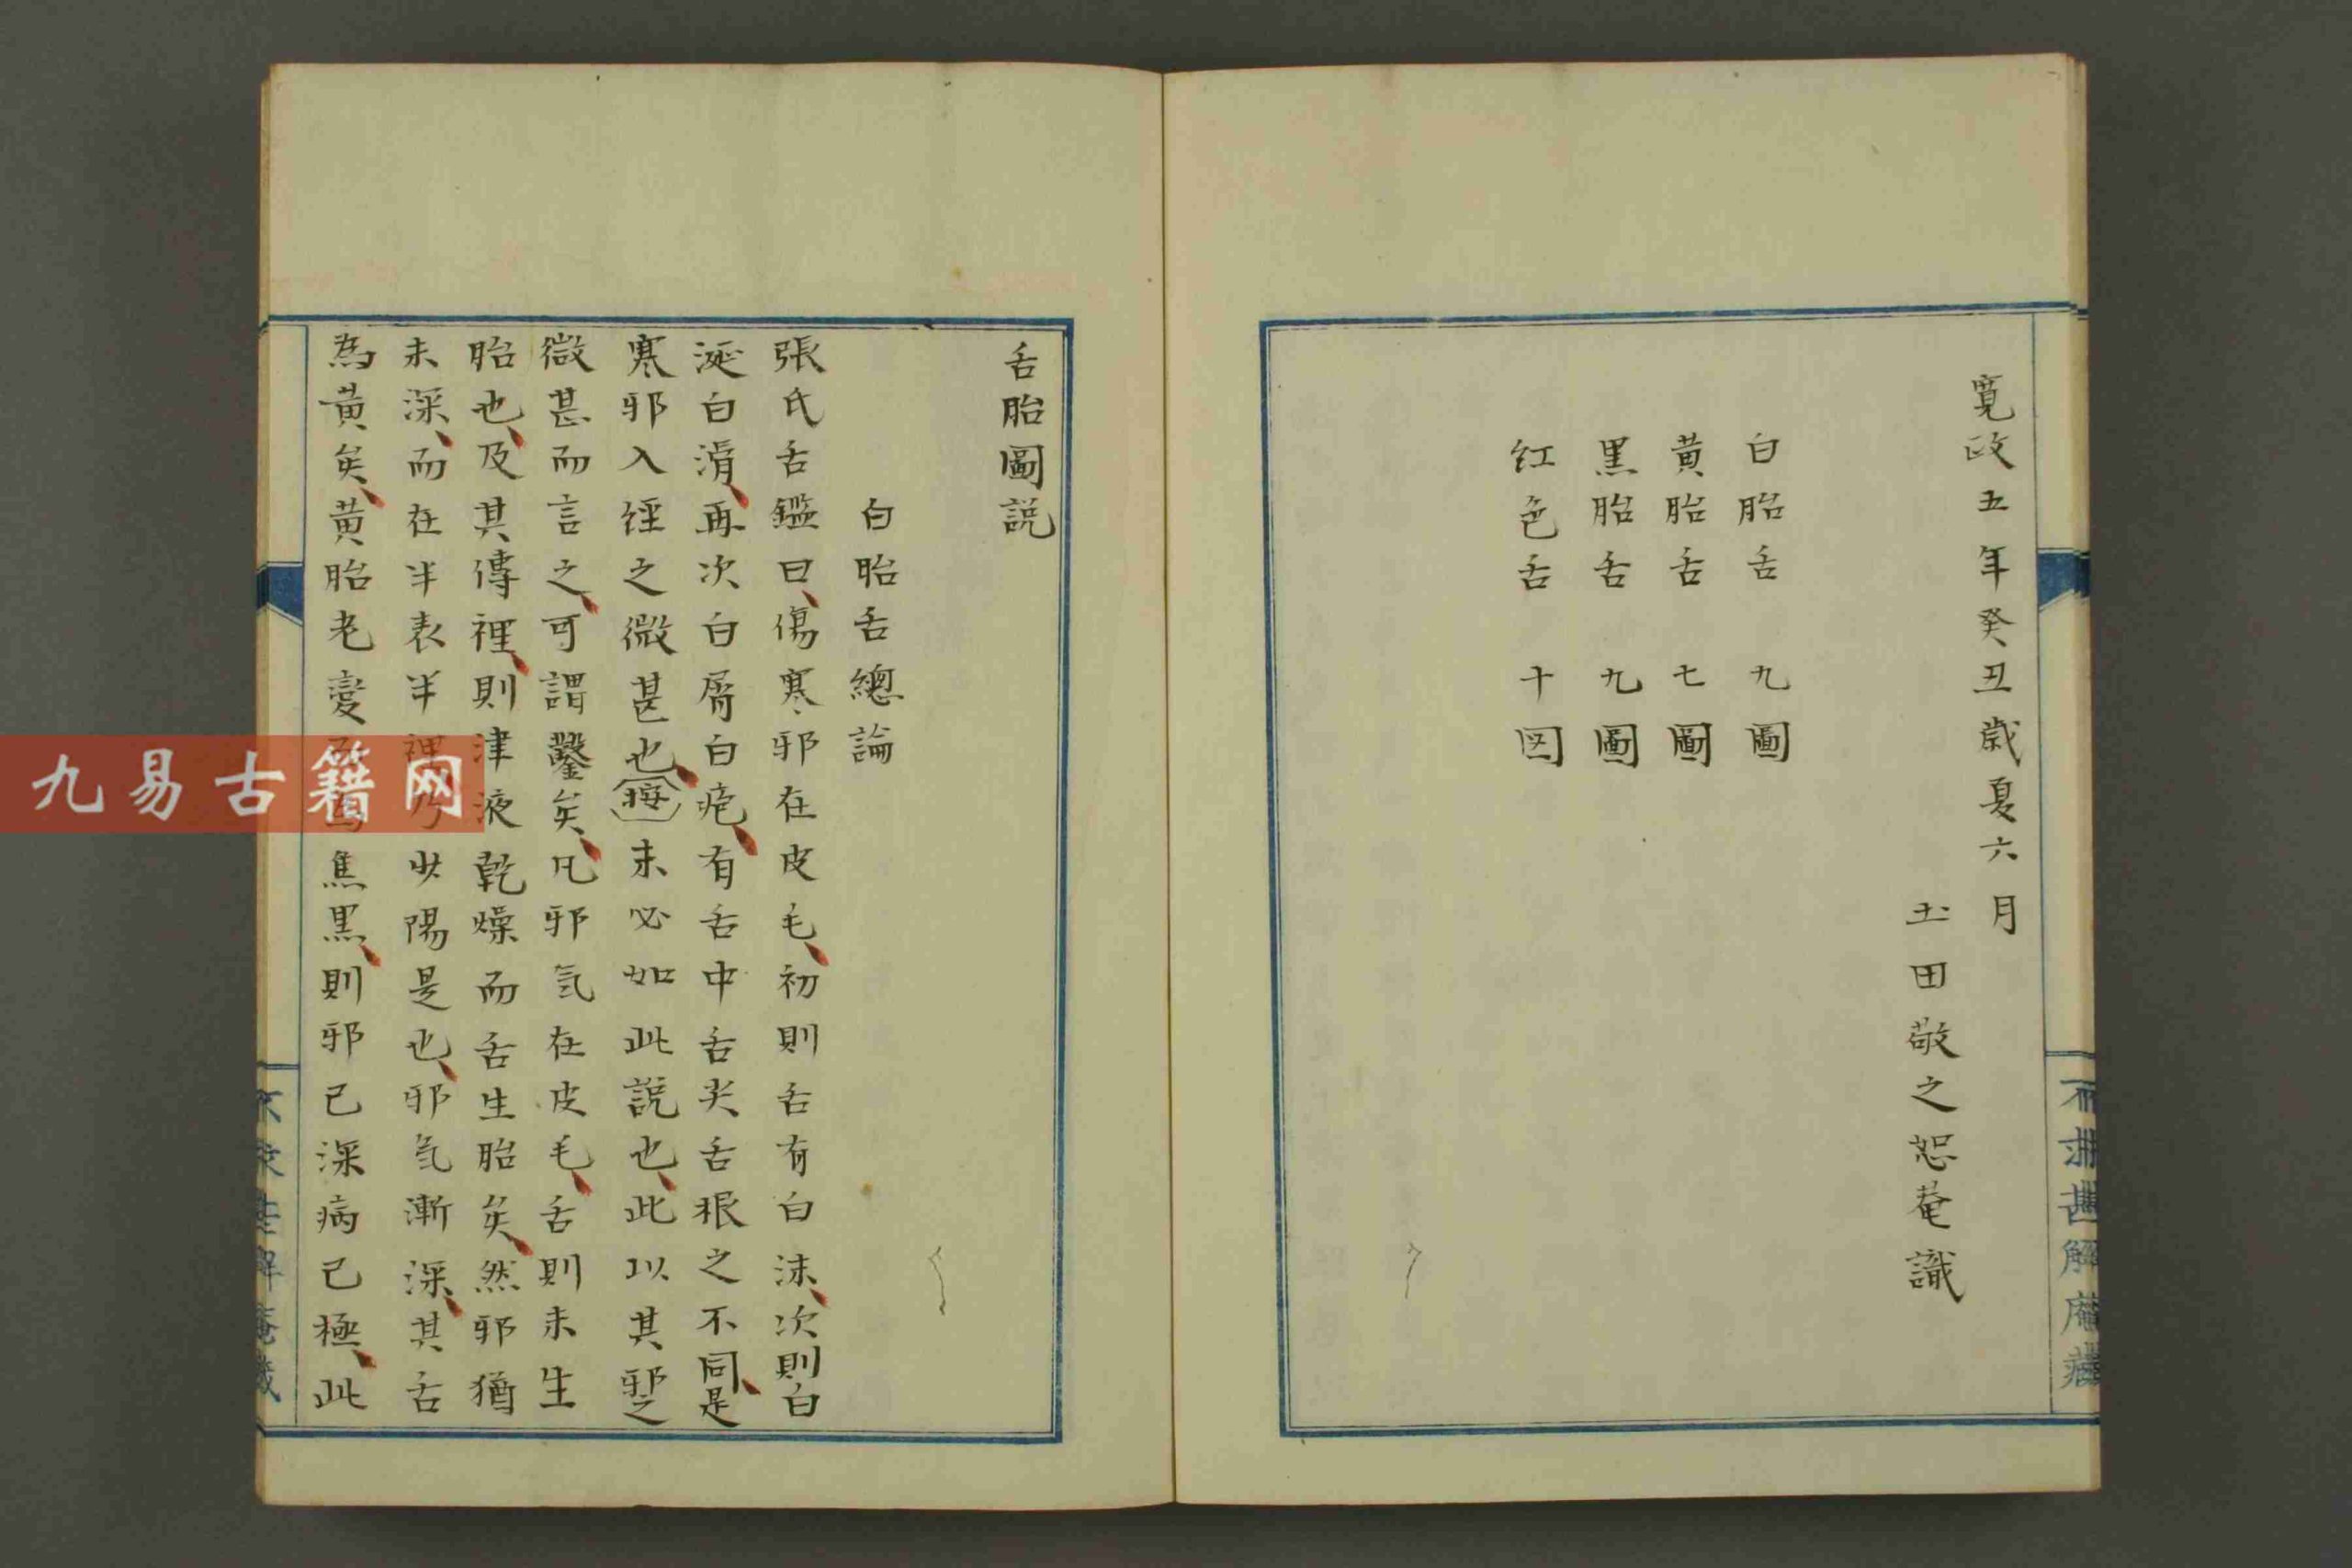 寛政五年癸丑歳夏六月
土田敬之恕菴識
白胎舌 九圖
黄胎舌 七圖
黒胎舌 九圖
红色舌 十図
舌胎圖説
白胎舌總論
張氏舌鑑曰傷寒邪在皮毛初則舌有白沫次則白
涎白滑再次白屑白疱有舌中舌尖舌根之不同是
寒邪入経之微甚也按未必如此說也此以其邪之
微甚而言之可謂鑿矣凡邪氣在皮毛舌則未生
胎也及其傳裡則津液乾燥而舌生胎矣然邪猶
未深而在半表半裡乃少陽是也邪気漸深其舌
為黄矣黄胎老変焦黒則邪已深病已極此
解庵藏
九易古籍网